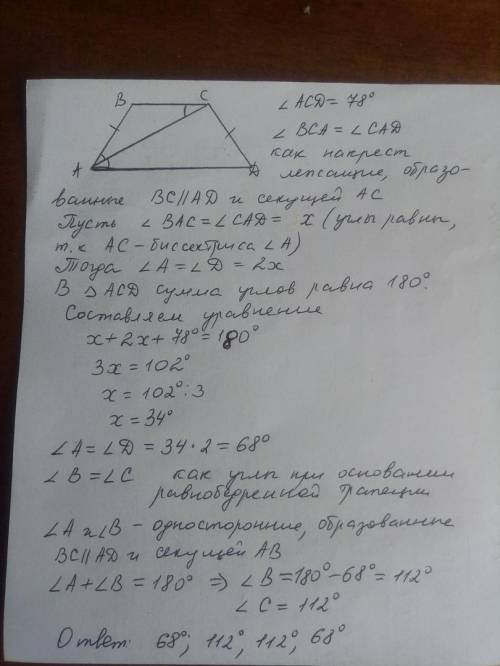 B C
A D
∠ACD = 78°
∠BCA = ∠CAD
как накрест
лежащие, образо-
ванные BC||AD и секущей AC
Пусть ∠BAC = ∠CAD = x (углы равны,
т.к AC - биссектриса ∠A)
Тогда ∠A = ∠D = 2x
В △ACD сумма углов равна 180°.
Составляем уравнение
x + 2x + 78° = 180°
3x = 102°
x = 102° : 3
x = 34°
∠A = ∠D = 34 · 2 = 68°
∠B = ∠C как углы при основании
равнобедренной трапеции
∠A и ∠B - односторонние, образованные
BC||AD и секущей AB
∠A + ∠B = 180° => ∠B = 180° - 68° = 112°
∠C = 112°
Ответ: 68°; 112°, 112°, 68°